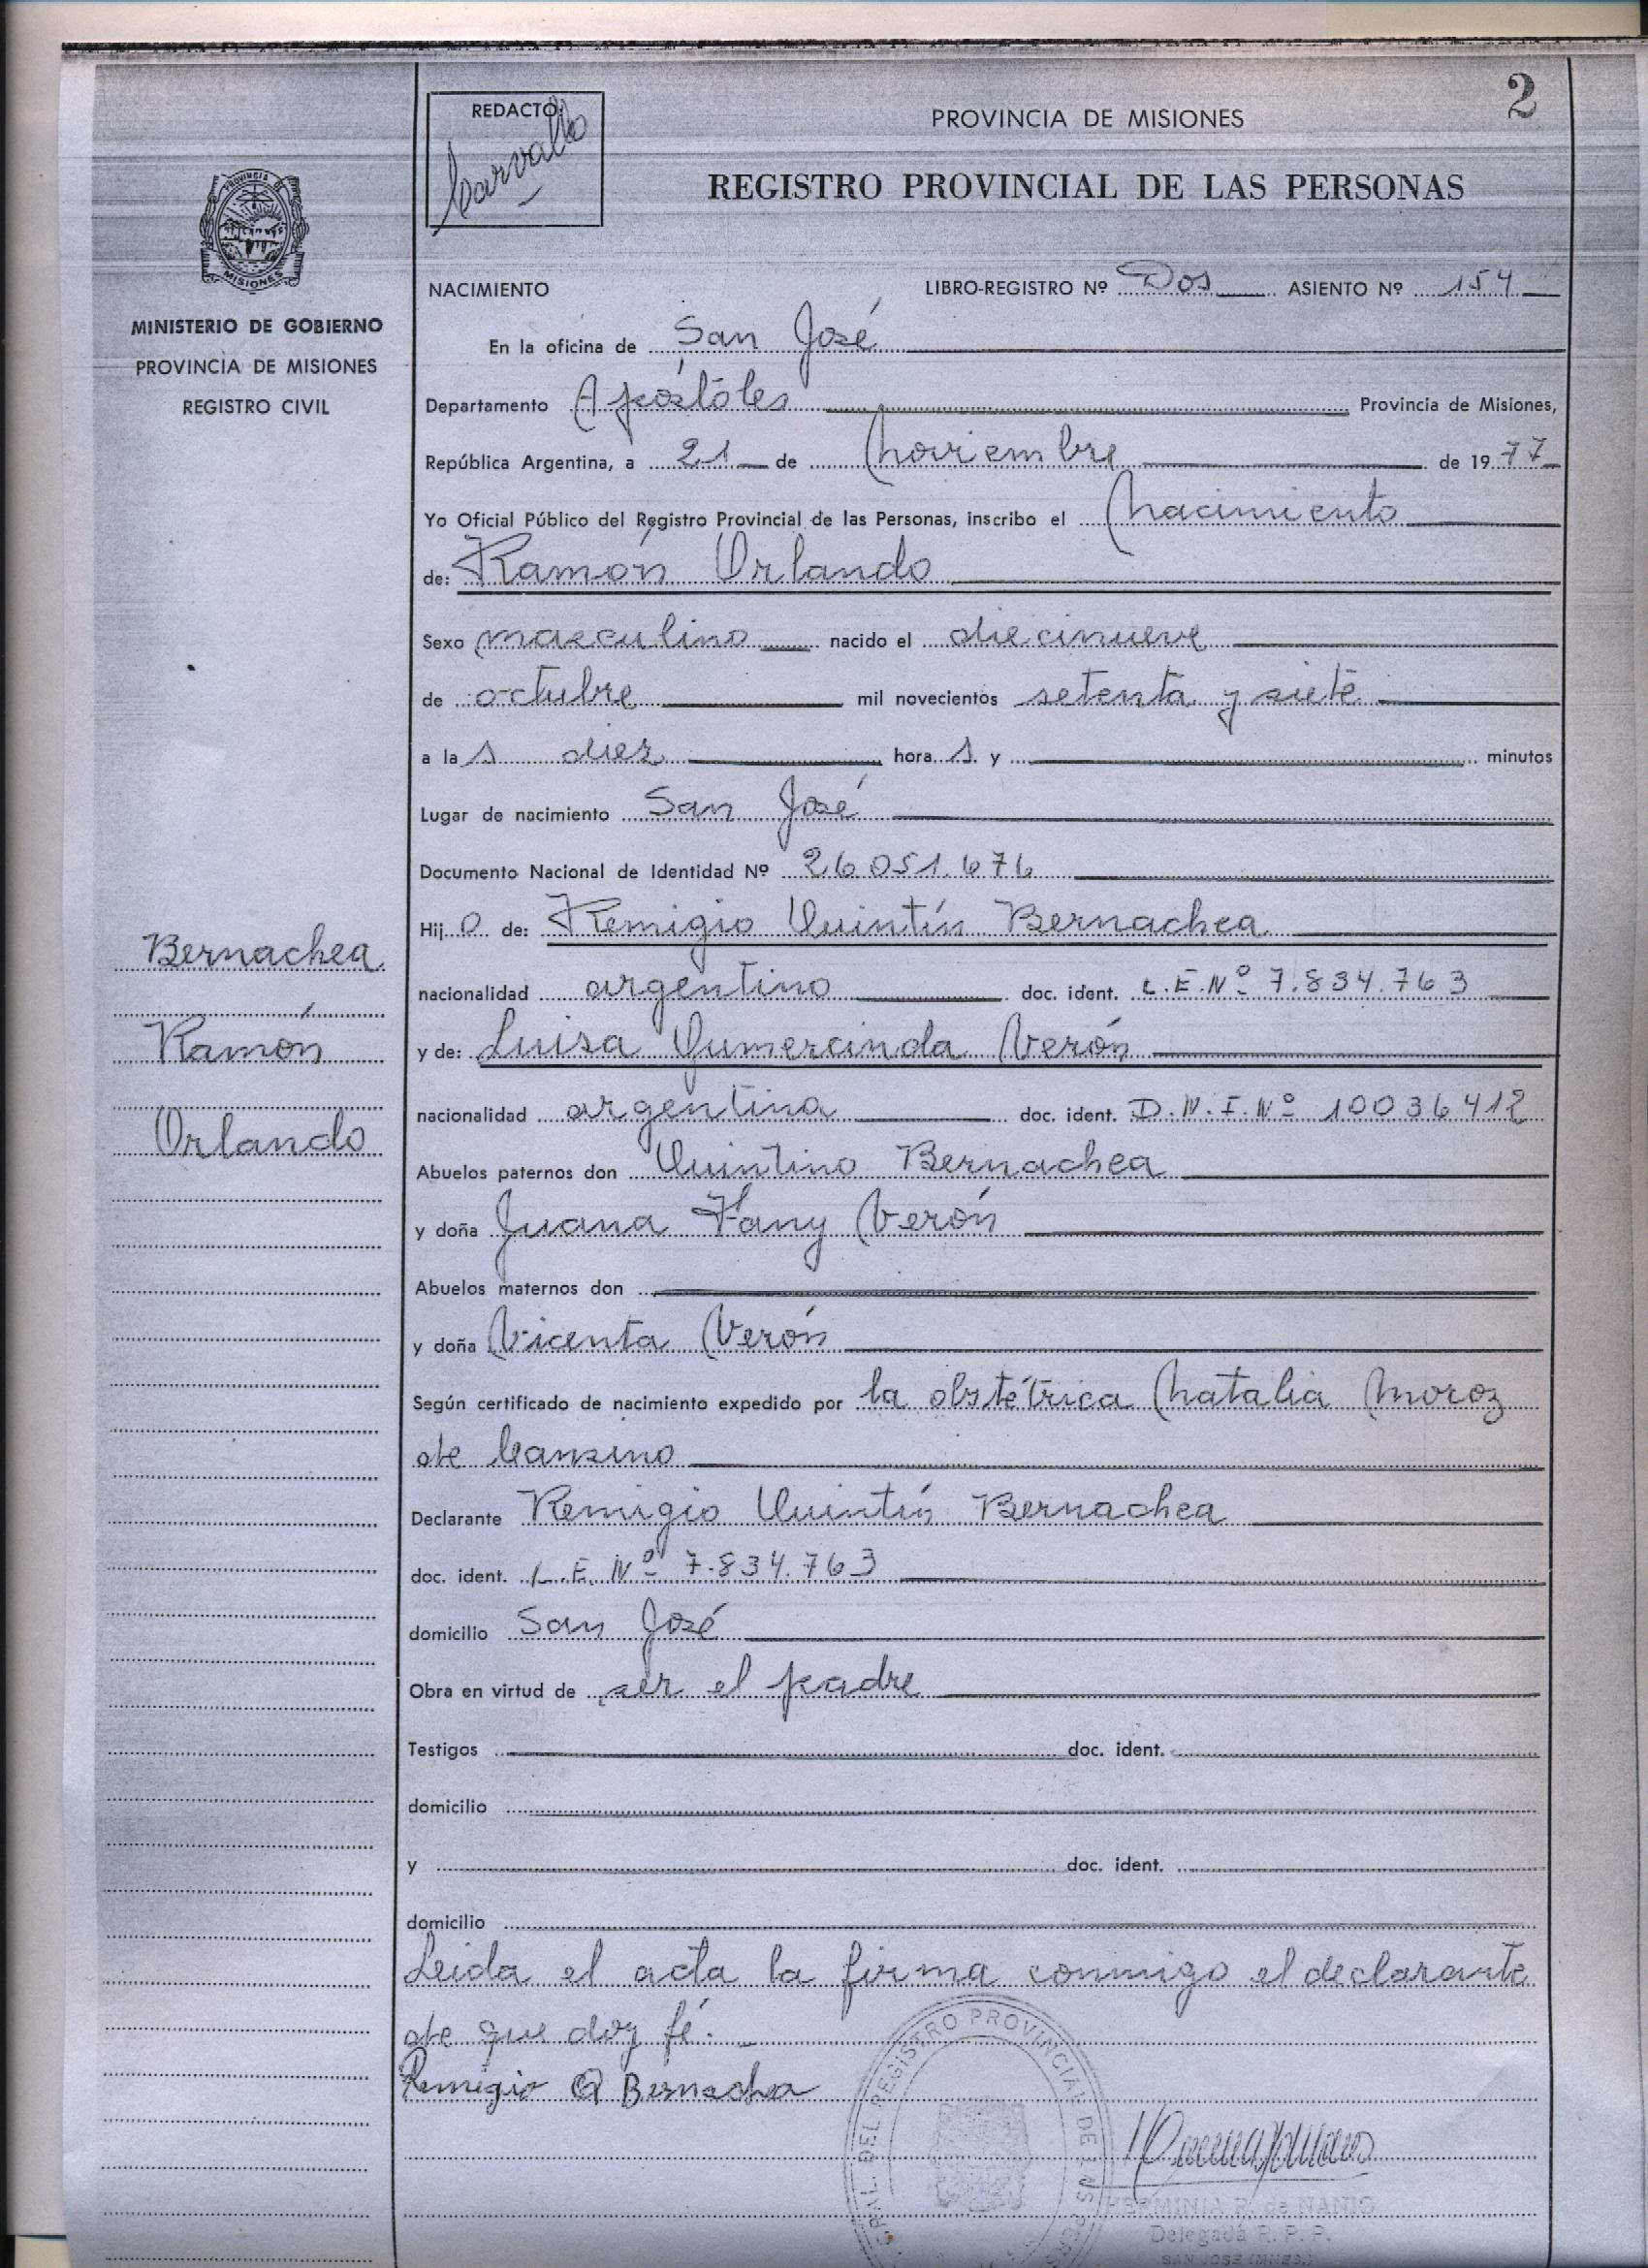 2
REDACTO
Carvallo
PROVINCIA DE MISIONES
REGISTRO PROVINCIAL DE LAS PERSONAS
PROVINCIA DE
MISIONES
MINISTERIO DE GOBIERNO
PROVINCIA DE MISIONES
REGISTRO CIVIL
NACIMIENTO LIBRO-REGISTRO Nº Dos ASIENTO Nº 154
En la oficina de San José
Departamento Apóstoles Provincia de Misiones,
República Argentina, a 21 de Noviembre de 1977
Yo Oficial Público del Registro Provincial de las Personas, inscribo el Nacimiento
de: Ramón Orlando
Sexo masculino nacido el diecinueve
de octubre mil novecientos setenta y siete
a las diez horas y minutos
Lugar de nacimiento San José
Documento Nacional de Identidad Nº 26.051.676
Hijo de: Remigio Quintín Bernachea
nacionalidad argentino doc. ident. L.E.Nº 7.834.763
y de: Luisa Gumercinda Verón
nacionalidad argentina doc. ident. D.N.I.Nº 10036412
Abuelos paternos don Quintino Bernachea
y doña Juana Fany Verón
Abuelos maternos don
y doña Vicenta Verón
Según certificado de nacimiento expedido por la obstétrica Natalia Moroz
de Cansino
Declarante Remigio Quintín Bernachea
doc. ident. L.E. Nº 7.834.763
domicilio San José
Obra en virtud de ser el padre
Testigos doc. ident.
domicilio
y doc. ident.
domicilio
Leida el acta la firma conmigo el declarante
de que doy fé.
Remigio Q Bernachea
Bernachea
Ramón
Orlando
DEL REGISTRO PROVINCIAL DE LAS
HERMINIA R. de NANIO
Delegada R. P. P.
SAN JOSE (MNES.)